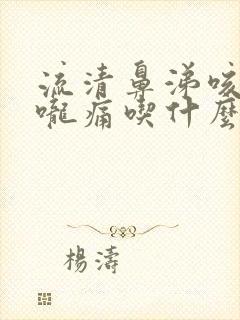 流清鼻涕咳
嚨痛喫什麼
楊濤